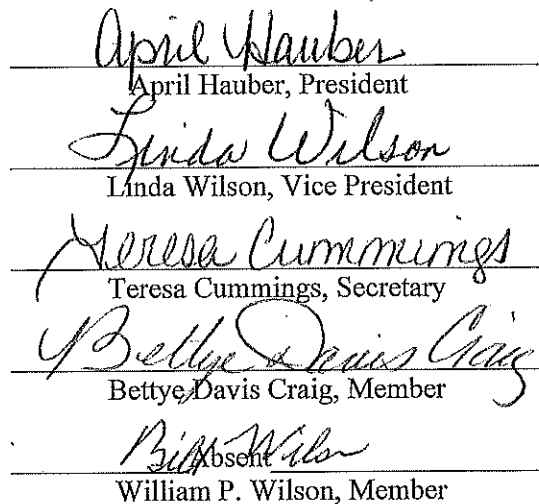 April Hauber
April Hauber, President
Linda Wilson
Linda Wilson, Vice President
Teresa Cummings
Teresa Cummings, Secretary
Bettye Davis Craig
Bettye Davis Craig, Member
Bill Wilson
Absent
William P. Wilson, Member